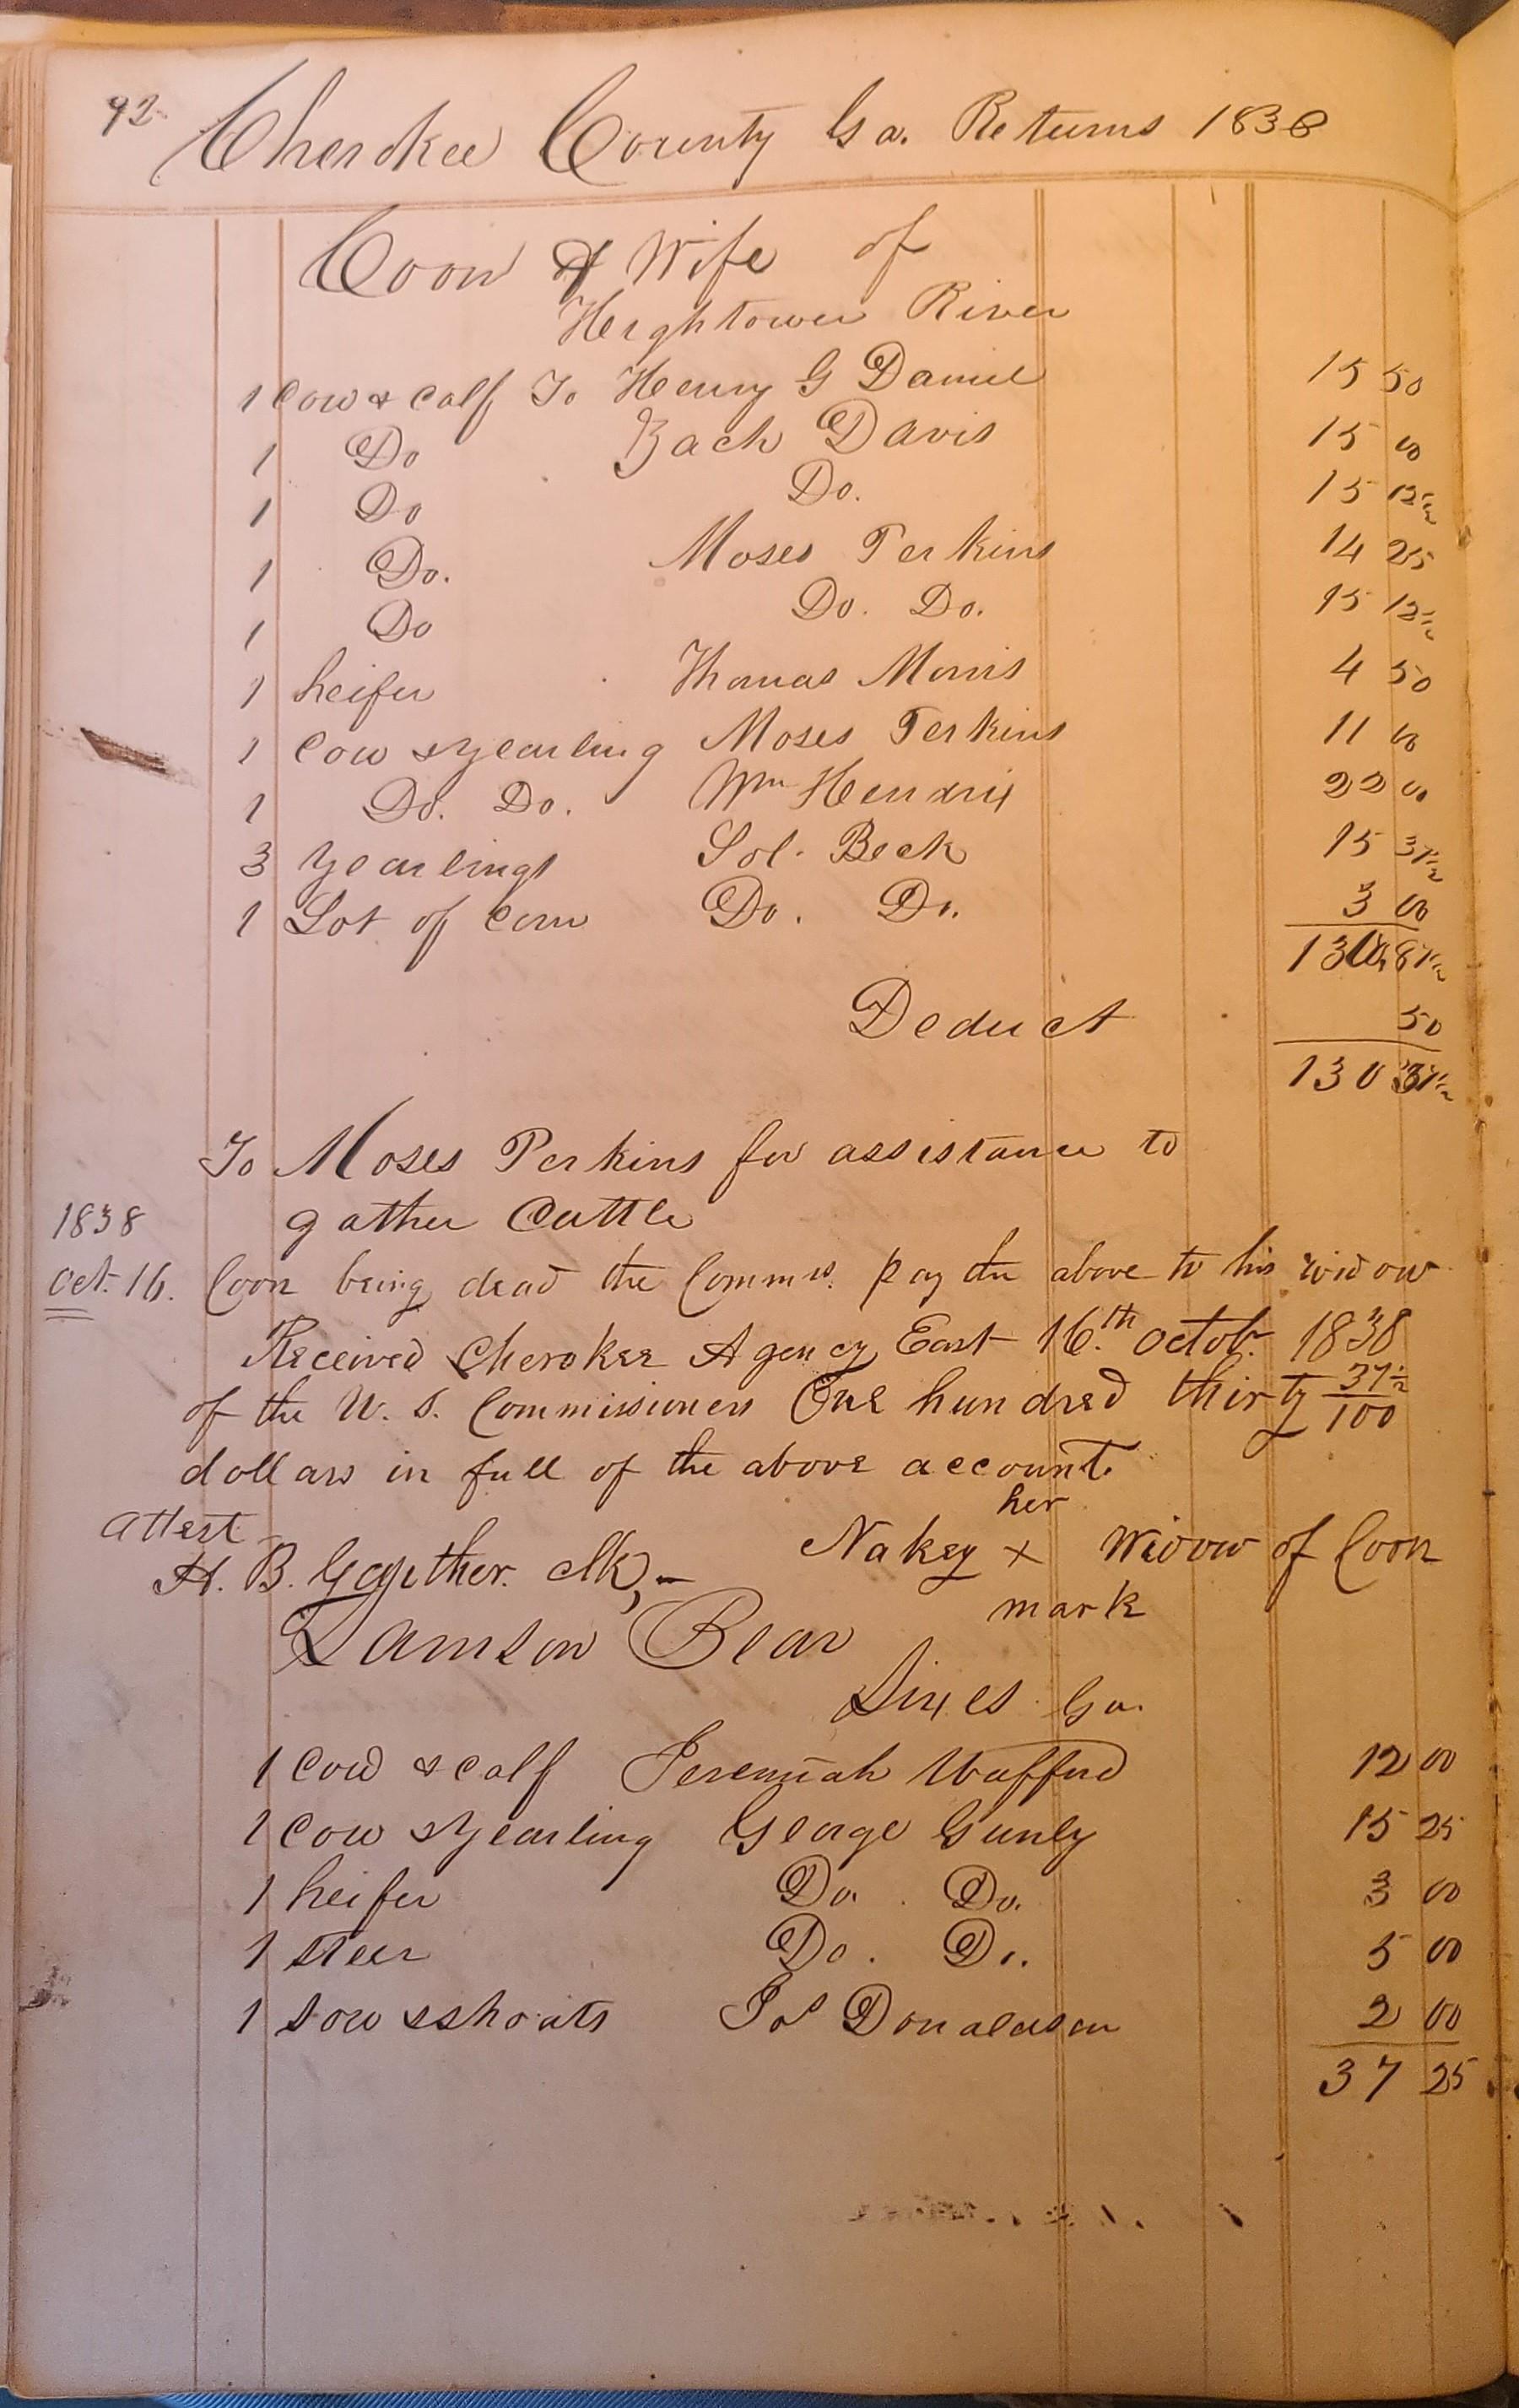 92
Cherokee County Ga. Returns 1838
Coon & Wife of
Hightower River
1 Cow & Calf To Henry G Daniel 15 50
1 Do Zach Davis 15 00
1 Do Do. 15 12½
1 Do. Moses Perkins 14 25
1 Do Do. Do. 15 12½
1 heifer Thomas Morris 4 50
1 Cow & yearling Moses Perkins 11 00
1 Do. Do. Wm Hendrix 22 00
3 yearlings Sol. Beck 15 37½
1 Lot of Corn Do. Do. 3 00
130 87½
Deduct 50
130 37½
To Moses Perkins for assistance to
1838 gather Cattle
Oct. 16. Coon being dead the Commrs. pay the above to his widow
Received Cherokee Agency East 16.th Octobr. 1838
of the U. S. Commissioners One hundred thirty 37½/100
dollars in full of the above account.
her
Attest Nakey x Widow of Coon
H. B. Gayther. Clk,
mark
Bear
Sixes Ga.
1 Cow & calf Jeremiah Wafford 12 00
1 Cow & yearling George Gunly 15 25
1 heifer Do. Do. 3 00
1 steer Do. Do. 5 00
1 sow & shoats Jos Donaldson 2 00
37 25